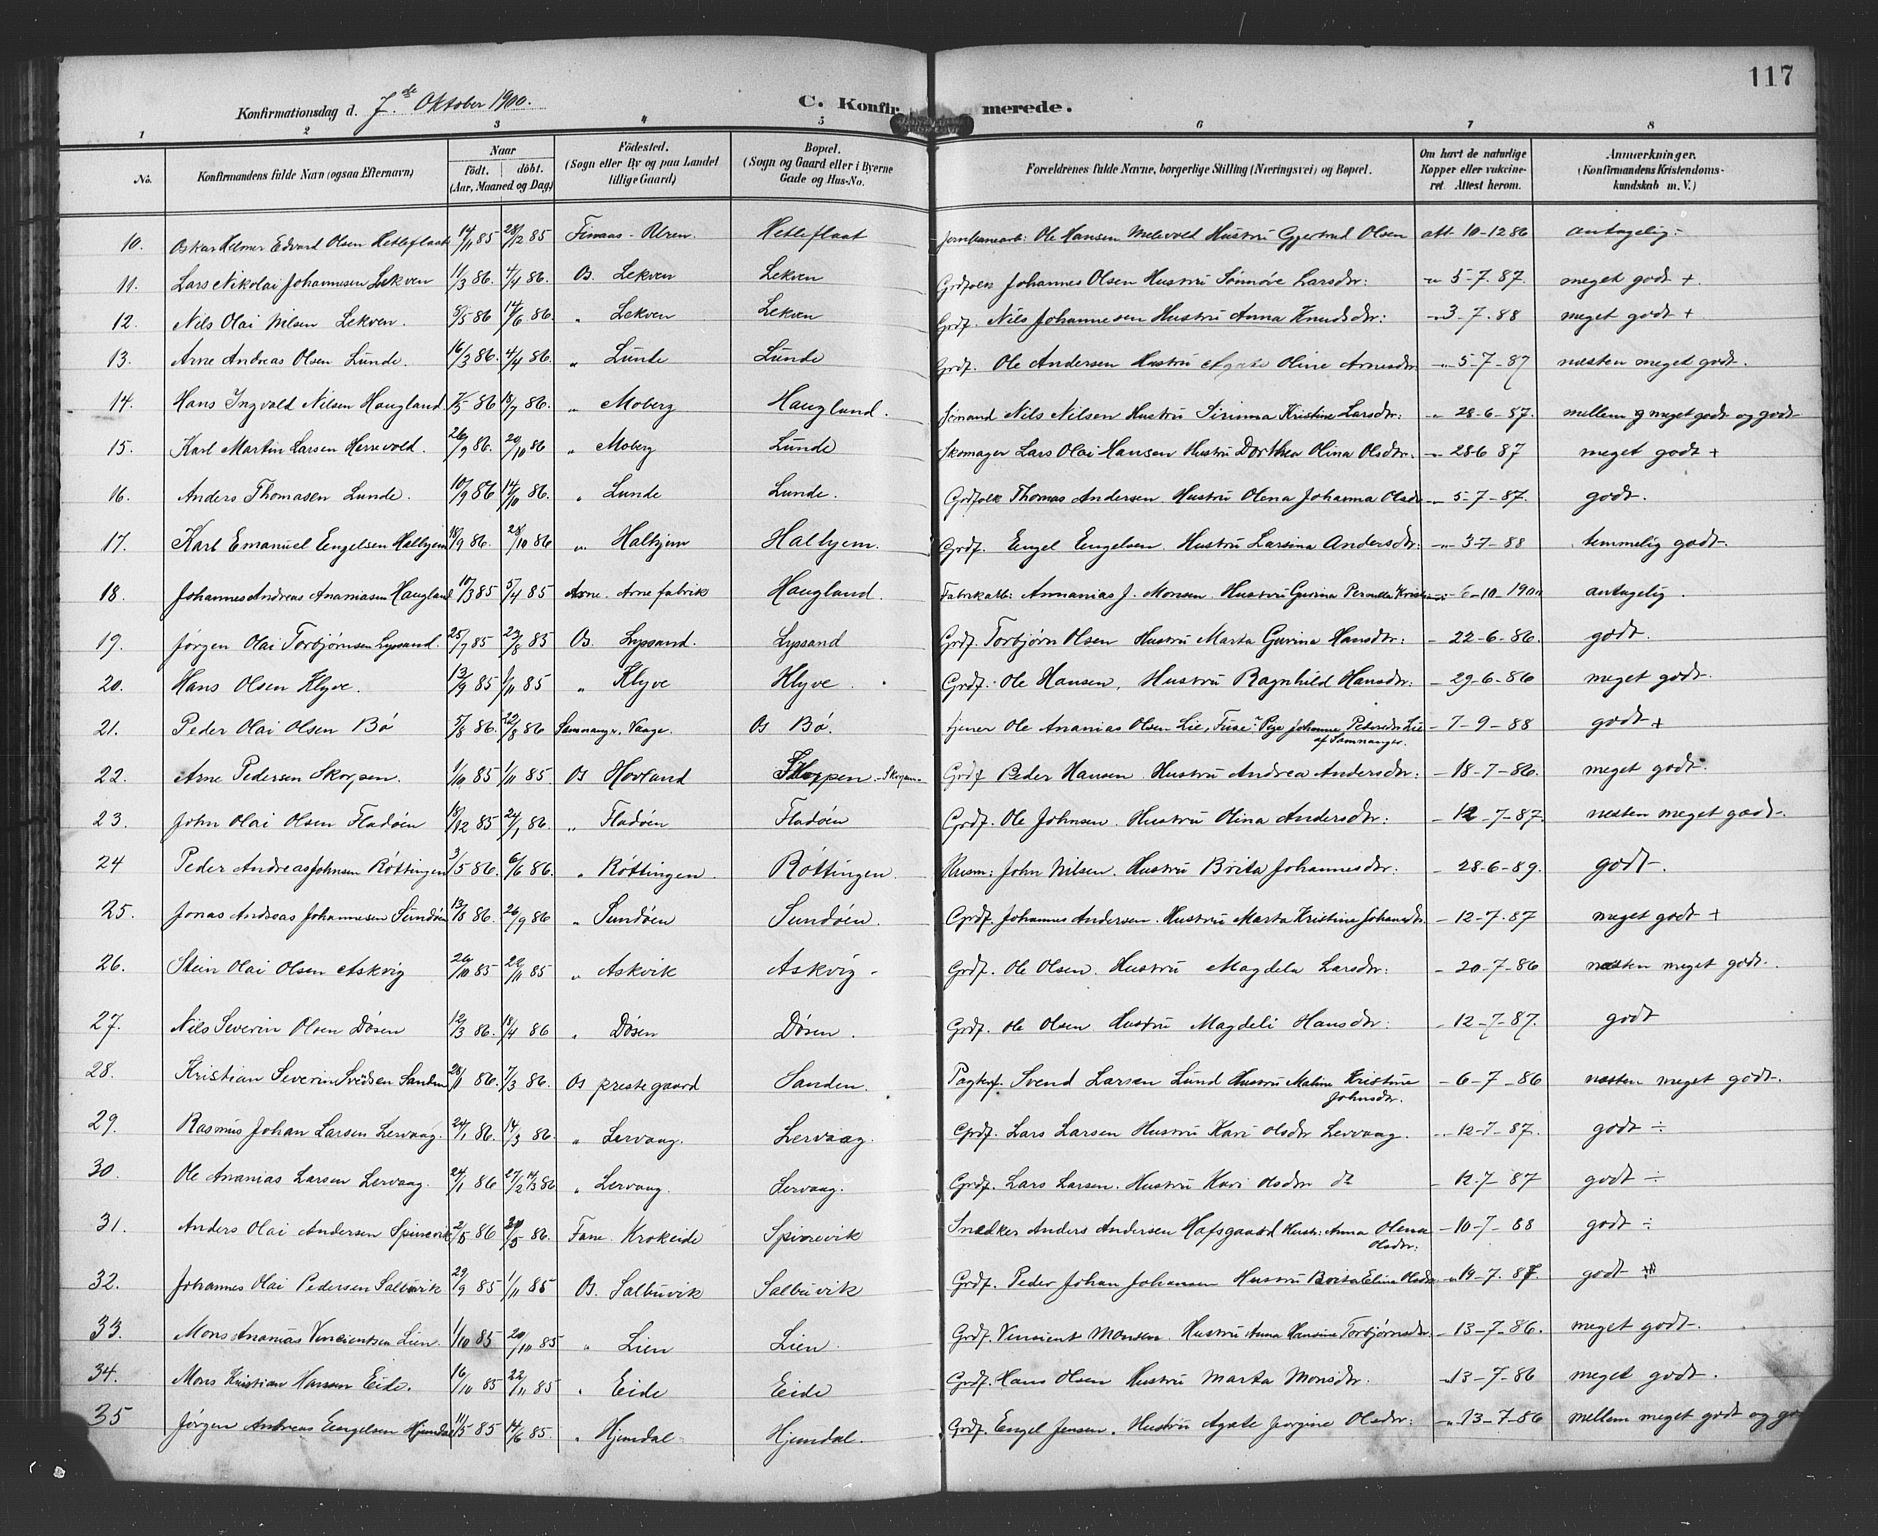 117
Konfirmationsdag d. 7de Oktober 1900.
C. Konfirmerede.
1 2 3 4 5 6 7 8
No.
Konfirmandens fulde Navn (ogsaa Efternavn)
Naar
Født. døbt.
(Aar, Maaned og Dag)
Fødested.
(Sogn eller By og paa Landet tillige Gaard)
Bopæl.
(Sogn og Gaard eller i Byerne Gade og Hus-No.
Forældrenes fulde Navne, borgerlige Stilling (Næringsvei) og Bopæl.
Om havt de naturlige Kopper eller vukcineret. Attest herom.
Anmærkninger.
(Konfirmandens Kristendomskundskab m. V.)
10. Oskar Helmer Edvard Olsen Hetleflaat 14/11 85 28/12 85 Finaas - Hetleflaat Jernbanearb: Ole Hansen Hustru Gjertrud Olsen att. 10-12 86 antagelig -
11. Lars Nikolai Johannesen Lekven 11/3 86. 4/4 86. Os. Lekven Lekven Grdfolk Johannes Olsen Hustru Sønnøve Larsdtr: - 5-7. 87. meget godt +
12. Nils Olai Nilsen Lekven. 5/5 86 14/6 86. " Lekven Lekven Grdf. Nils Johannesen Hustru Anna Knudsdtr: - 3-7. 88 meget godt +
13. Arne Andreas Olsen Lunde. 16/3 86. 4/4 86. " Lunde Lunde Grdf. Ole Andersen Hustru Agate Oline Arnesdtr - 5-7-87 næsten meget godt.
14. Hans Ingvald Nilsen Haugland 86 86. " Moberg Haugland. Nils Nilsen Hustru Sirinna Kristine Larsdtr: - 28-6-87. mellem meget godt og godt
15. Karl Martin Larsen Herrevold. 26/9 86. 29/10 86 " Moberg Lunde Skomager Lars Olai Hansen Hustru Dorthea Olina Olsdtr. - 28-6 87 meget godt +
16. Anders Thomasen Lunde. 10/9 86 14/10 86. " Lunde Lunde. Grdfolk Thomas Andersen. Hustru Olena Johanna Olsdtr - 5-7-87. godt.
17. Karl Emanuel Engelsen Halhjem 18/9 86. 28/10 86 " Halhjem Halhjem. Grdf. Engel Engelsen. Hustru Larsina Andersdtr: - 3-7-88 temmelig godt.
18. Johannes Andreas Ananiasen Haugland 10/3 85 5/4 85 Arne. Arne fabrik Haugland. Fabrikarb: Annanias J. Monsen. Hustru Gurina Pernella - 6-10-1900 antagelig.
19. Jørgen Olai Torbjørnsen Lyssand. 25/7 85 23/8 85 Os. Lyssand. Lyssand Grdf. Torbjørn Olsen Hustru Marta Gurina Hansdtr: - 22-6-86. godt.
20. Hans Olsen Klyve. 13/9 85 1/11 85 " Klyve Klyve. Grdf. Ole Hansen, Hustru Ragnhild Hansdtr: - 29-6-86 meget godt.
21. Peder Olai Olsen Bø 5/8 86. 22/8 86 Samnanger. Vaage. Os Bø. tjener Ole Ananias Olsen Lie, Fuse. Pige Johanne Pedersdtr Lie af Samnanger. - 7-9-88 godt +
22. Arne Pedersen Skorpen. 1/10 85 1/11 85 Os Hovland Skorpen - Skorpen Grdf Peder Hansen. Hustru Andrea Andersdtr: - 18-7-86. meget godt.
23. John Olai Olsen Fladøen 18/12 85 24/1 86. " Fladøen Fladøen Grdf. Ole Johnsen. Hustru Olina Andersdtr: - 12-7-87. næsten meget godt.
24 Peder Andreas Johnsen Røttingen 3/5 86. 6/6 86. " Røttingen. Røttingen. Husm: John Nilsen. Hustru Brita Johannesdtr: - 28-6-89. godt.
25. Jonas Andreas Johannesen Sundøen 13/8 86. 26/9 86 " Sundøen Sundøen. Grdf. Johannes Andersen. Hustru Marta Kristine Johansdtr. - 12-7. 87 meget godt +
26. Stein Olai Olsen Askvig 26/10 85 22/11 85 " Askvik Askvig - Grdf. Ole Olsen. Hustru Magdela Larsdtr: - 20-7-86 næsten meget godt.
27. Nils Severin Olsen Døsen 12/3 86. 18/4 86 " Døsen Døsen. Grdf. Ole Olsen. Hustru Magdeli Hansdtr: - 12-7-87. godt
28. Kristian Severin Svendsen Sanden 28/1 86. 7/3 86. Os prestegaard Sanden. Svend Larsen Lund Hustru Malina Kristine Johnsdtr. - 6-7-86 næsten meget godt.
29. Rasmus Johan Larsen Lervaag. 24/1 86. 14/3 86. " Lervaag. Lervaag. Grdf. Lars Larsen Hustru Kari Olsdtr Lervaag. - 12-7-87. godt ÷
30. Ole Ananias Larsen Lervaag. 24/1 86 27/2 14/3 86 " Lervaag. Lervaag. Grdf. Lars Larsen. Hustru Kari Olsdtr do - 12-7-87 godt ÷
31. Anders Olai Andersen Spirrevik 2/5 86 86. Fane. Krokeide Spirrevik Snedker Anders Andersen Hafsgaard Hustr: Anna Olena Olsdtr: - 10-7-88 godt ÷
32. Johannes Olai Pedersen Salbuvik 29/9 85 1/11 85 Os. Salbuvik Salbuvik Grdf. Peder Johan Johansen Hustru Brita Elina Olsdtr - 19-7. 87. godt
33. Mons Ananias Vincientsen Lien. 1/10 85 20/10 85 " Lien Lien. Grdf. Vincient Monsen. Hustru Anna Hansine Torbjørnsdtr - 13-7-86. meget godt.
34. Mons Kristian Hansen Eide. 16/10 85 22/11 85 " Eide Eide Grdf. Hans Olsen Hustru Marta Monsdtr. - 13-7-86 meget godt.
35 Jørgen Andreas Engelsen Hjemdal 11/5 85 14/6 85. " Hjemdal Hjemdal. Grdf. Engel Jensen. Hustru Agate Jorgine Olsdtr: - 13-7-86 mellem meget godt og